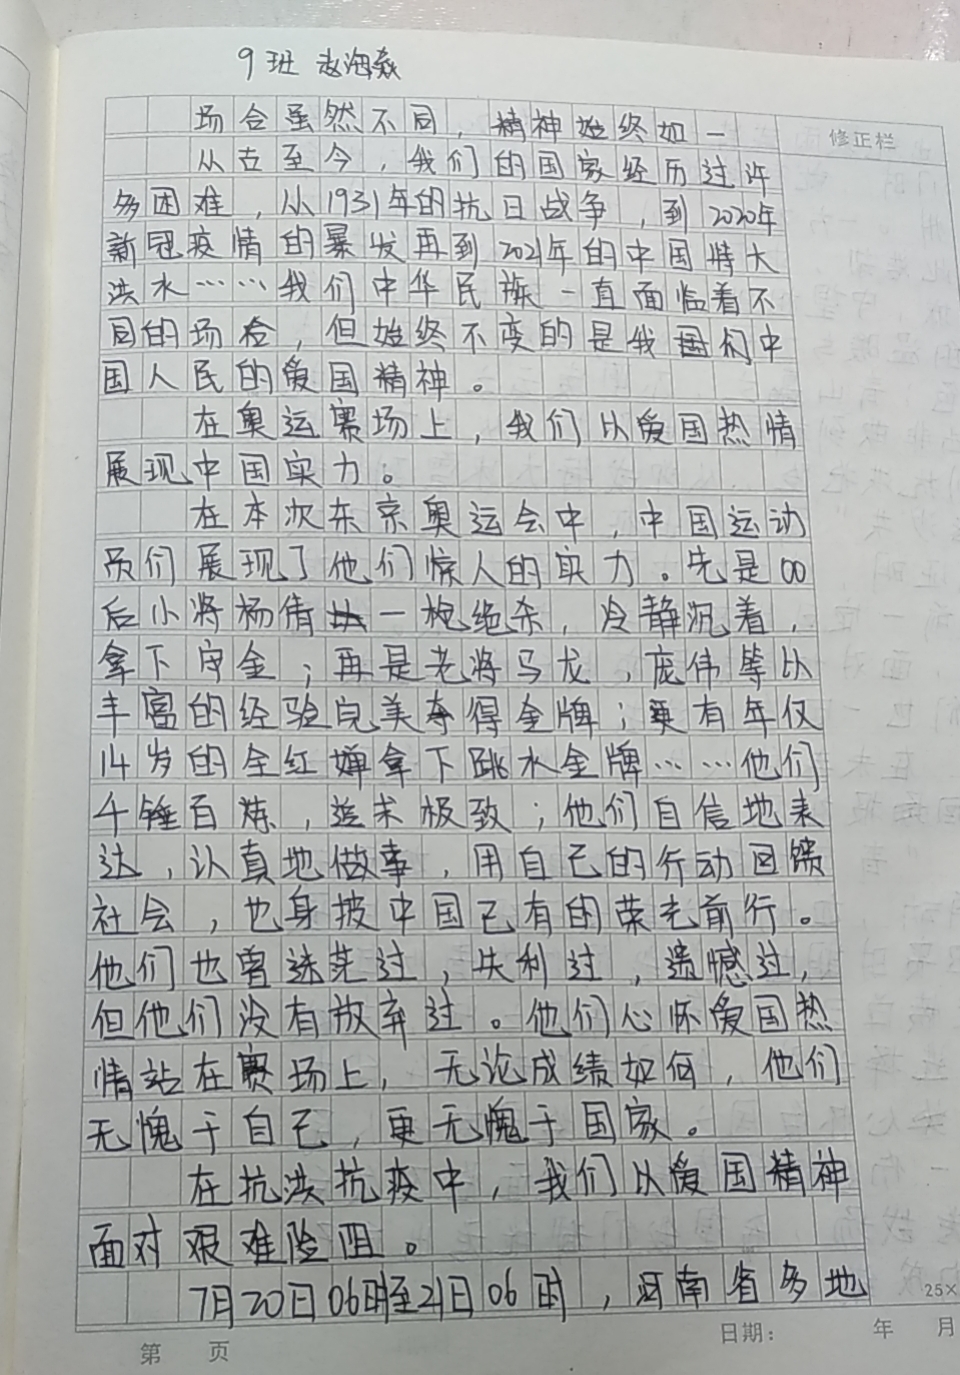 9班 赵海燚
场合虽然不同，精神始终如一
修正栏
从古至今，我们的国家经历过许
多困难，从1931年的抗日战争，到2020年
新冠疫情的暴发再到2021年的中国特大
洪水……我们中华民族一直面临着不
同的场合，但始终不变的是我们中
国人民的爱国精神。
在奥运赛场上，我们以爱国热情
展现中国实力。
在本次东京奥运会中，中国运动
员们展现了他们惊人的实力。先是00
后小将杨倩一枪绝杀，冷静沉着，
拿下首金；再是老将马龙，庞伟等以
丰富的经验完美夺得金牌；更有年仅
14岁的全红婵拿下跳水金牌……他们
千锤百炼，追求极致；他们自信地表
达，认真地做事，用自己的行动回馈
社会，也身披中国已有的荣光前行。
他们也曾迷茫过，失利过，遗憾过，
但他们没有放弃过。他们心怀爱国热
情站在赛场上，无论成绩如何，他们
无愧于自己，更无愧于国家。
在抗洪抗疫中，我们以爱国精神
面对艰难险阻。
7月20日06时至21日06时，河南省多地
25×
第 页
日期： 年 月